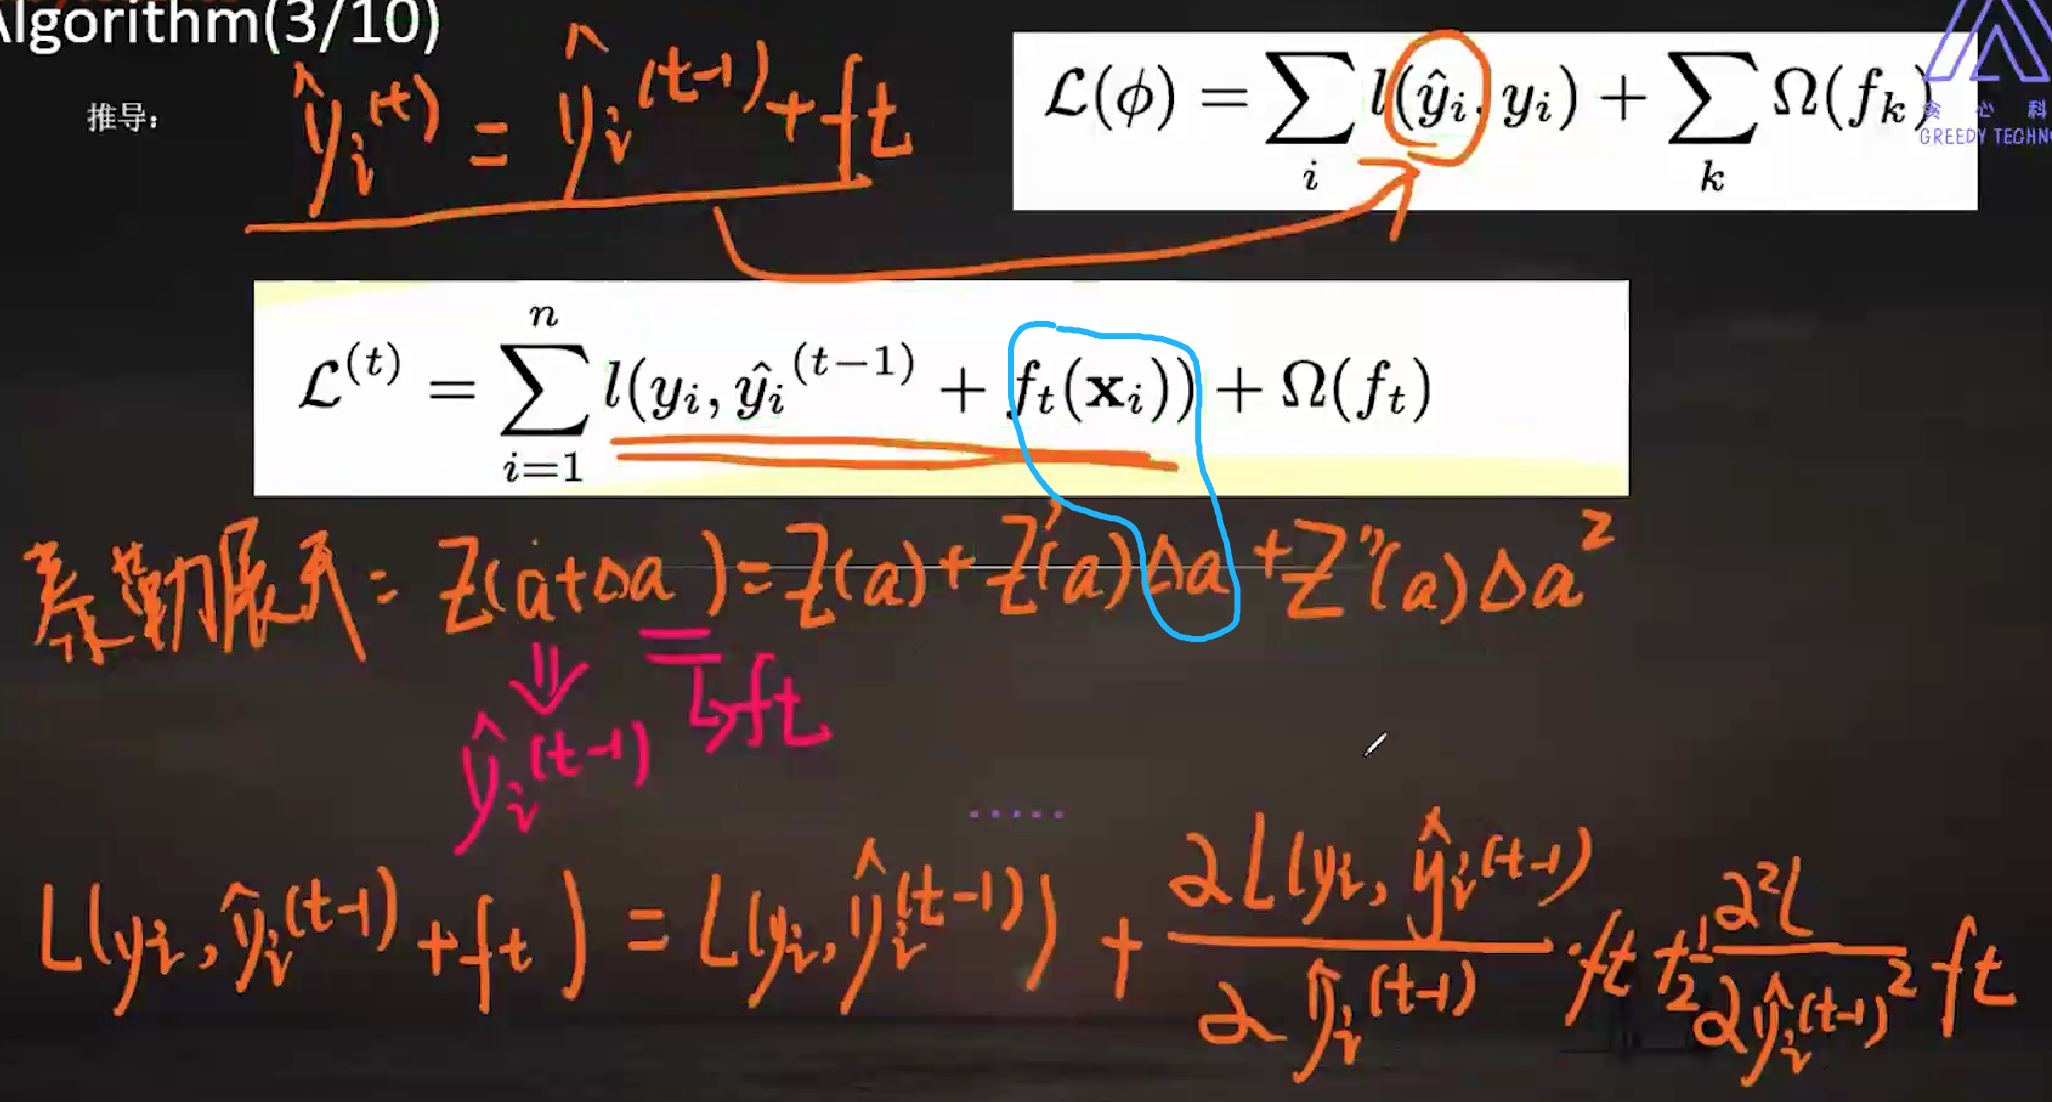 Algorithm(3/10)
推导:
ŷᵢ⁽ᵗ⁾ = ŷᵢ⁽ᵗ⁻¹⁾ + ft
ℒ(ϕ) = ∑ᵢ l(ŷᵢ, yᵢ) + ∑ₖ Ω(fₖ)
贪 心 科
GREEDY TECHN
ℒ⁽ᵗ⁾ = ∑ᵢ₌₁ⁿ l(yᵢ, ŷᵢ⁽ᵗ⁻¹⁾ + fₜ(𝐱ᵢ)) + Ω(fₜ)
泰勒展开: Z(a+Δa) = Z(a) + Z'(a)Δa + Z''(a)Δa²
ŷᵢ⁽ᵗ⁻¹⁾
ft
L(yᵢ, ŷᵢ⁽ᵗ⁻¹⁾ + ft) = L(yᵢ, ŷᵢ⁽ᵗ⁻¹⁾) + ∂L(yᵢ, ŷᵢ⁽ᵗ⁻¹⁾ / ∂ŷᵢ⁽ᵗ⁻¹⁾ · ft + 1/2 ∂²L / ∂ŷᵢ⁽ᵗ⁻¹⁾² ft